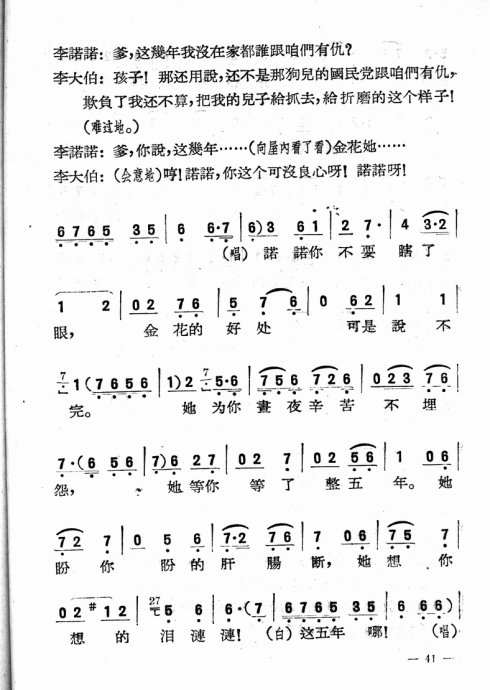 李諾諾：爹，这幾年我沒在家都誰跟咱們有仇？
李大伯：孩子！那还用說，还不是那狗兒的國民党跟咱們有仇，
欺負了我还不算，把我的兒子給抓去，給折磨的这个样子！
（难过地。）
李諾諾：爹，你說，这幾年……（向屋內看了看）金花她……
李大伯：（会意地）哼！諾諾，你这个可沒良心呀！諾諾呀！
6 7 6 5 3 5 | 6 6·7 | 6) 3 6 1 | 2 7· | 4 3·2 |
（唱）諾 諾你 不 要 瞎 了
1 2 | 0 2 7 6 | 5 7 6 | 0 6 2 | 1 1 |
眼， 金 花的 好 处 可是 說 不
7 1 (7 6 5 6 | 1) 2 7 5·6 | 7 5 6 7 2 6 | 0 2 3 7 6 |
完。 她 为你 晝 夜 辛 苦 不 埋
7·(6 5 6 | 7) 6 2 7 | 0 2 7 | 0 2 5 6 | 1 0 6 |
怨， 她 等你 等 了 整 五 年。她
7 2 7 | 0 5 6 | 7·2 7 6 | 7 0 6 | 7 5 7 |
盼 你 盼 的 肝 腸 断，她 想 你
0 2 #1 2 | 27 5 6 | 6·(7 | 6 7 6 5 3 5 | 6 6 6) |
想 的 泪 漣 漣！（白）这五年 哪！（唱）
— 41 —